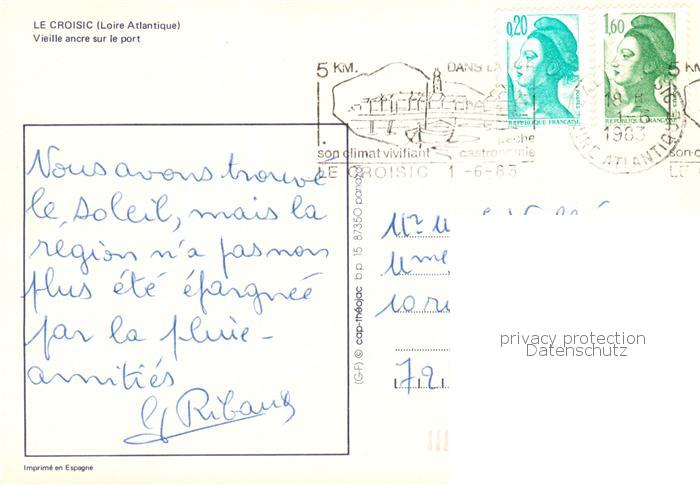 LE CROISIC (Loire Atlantique)
Vieille ancre sur le port
0,20
1,60
REPUBLIQUE FRANÇAISE
REPUBLIQUE FRANÇAISE
5 KM.
DANS LA
5 K
18 H
1-6
1983
LOIRE ATLANTIQUE
pêche
son climat vivifiant gastronomie
son c
LE CROISIC 1 -6-83
LE
Nous avons trouvé
le soleil, mais la
région n'a pas non
plus été épargnée
par la pluie -
amitiés
G Ribaud
(G-F) © cap-théojac b.p. 15 87350 panazol
Mr
Mme,
10 
72
privacy protection
Datenschutz
Imprimé en Espagne